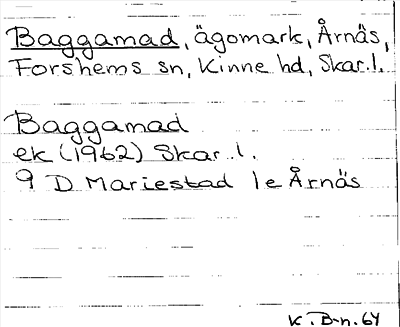 Baggamad, ägomark, Årnäs,
Forshems sn, Kinne hd, Skar.l.
Baggamad
ek (1962) Skar.l.
9 D Mariestad 1e Årnäs
K.B-n.64